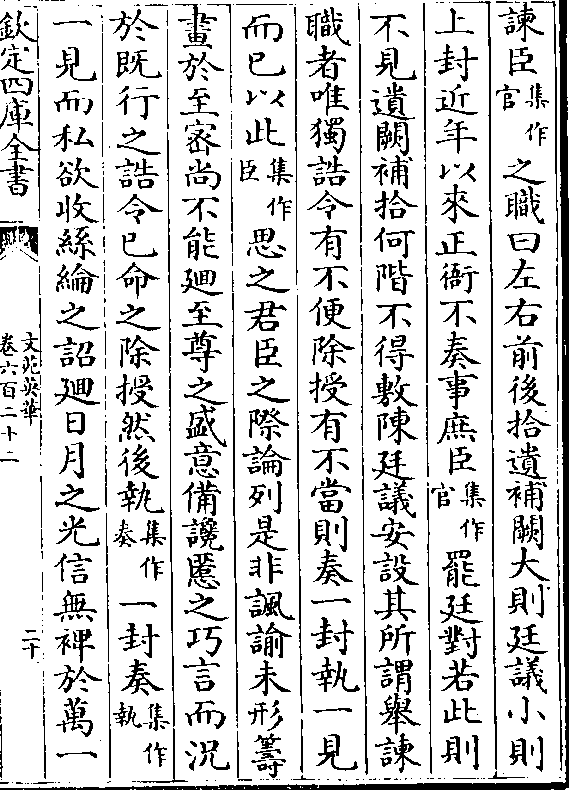 諫臣集作官之職曰左右前後拾遺補闕大則廷議小則
上封近年以來正衙不奏事庶臣集作官罷廷對若此則
不見遺闕補拾何階不得敷陳廷議安設其所謂舉諫
職者唯獨誥令有不便除授有不當則奏一封執一見
而已以此集作臣思之君臣之際論列是非諷諭未形籌
畫於至密尚不能廻至尊之盛意備讒慝之巧言而況
於既行之誥令已命之除授然後執集作奏一封奏集作執
一見而私欲收絲綸之詔廻日月之光信無裨於萬一
欽定四庫全書
文苑英華
卷六百二十二
二十